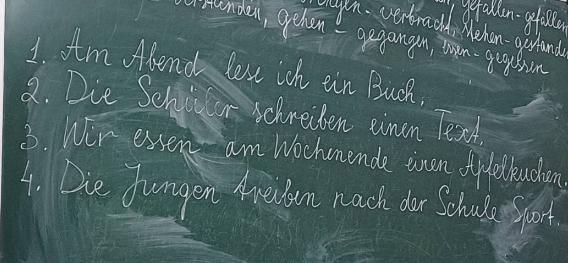 verbracht, stehen - gestanden
gefallen - gefallen
gehen - gegangen, essen - gegessen
1. Am Abend lese ich ein Buch.
2. Die Schüler schreiben einen Text.
3. Wir essen am Wochenende einen Apfelkuchen.
4. Die Jungen treiben nach der Schule Sport.